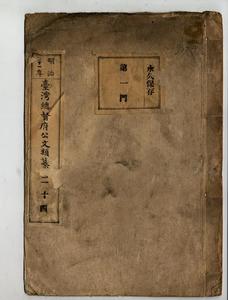 永久保存
第一門
明治
臺灣總督府公文類纂 二十四